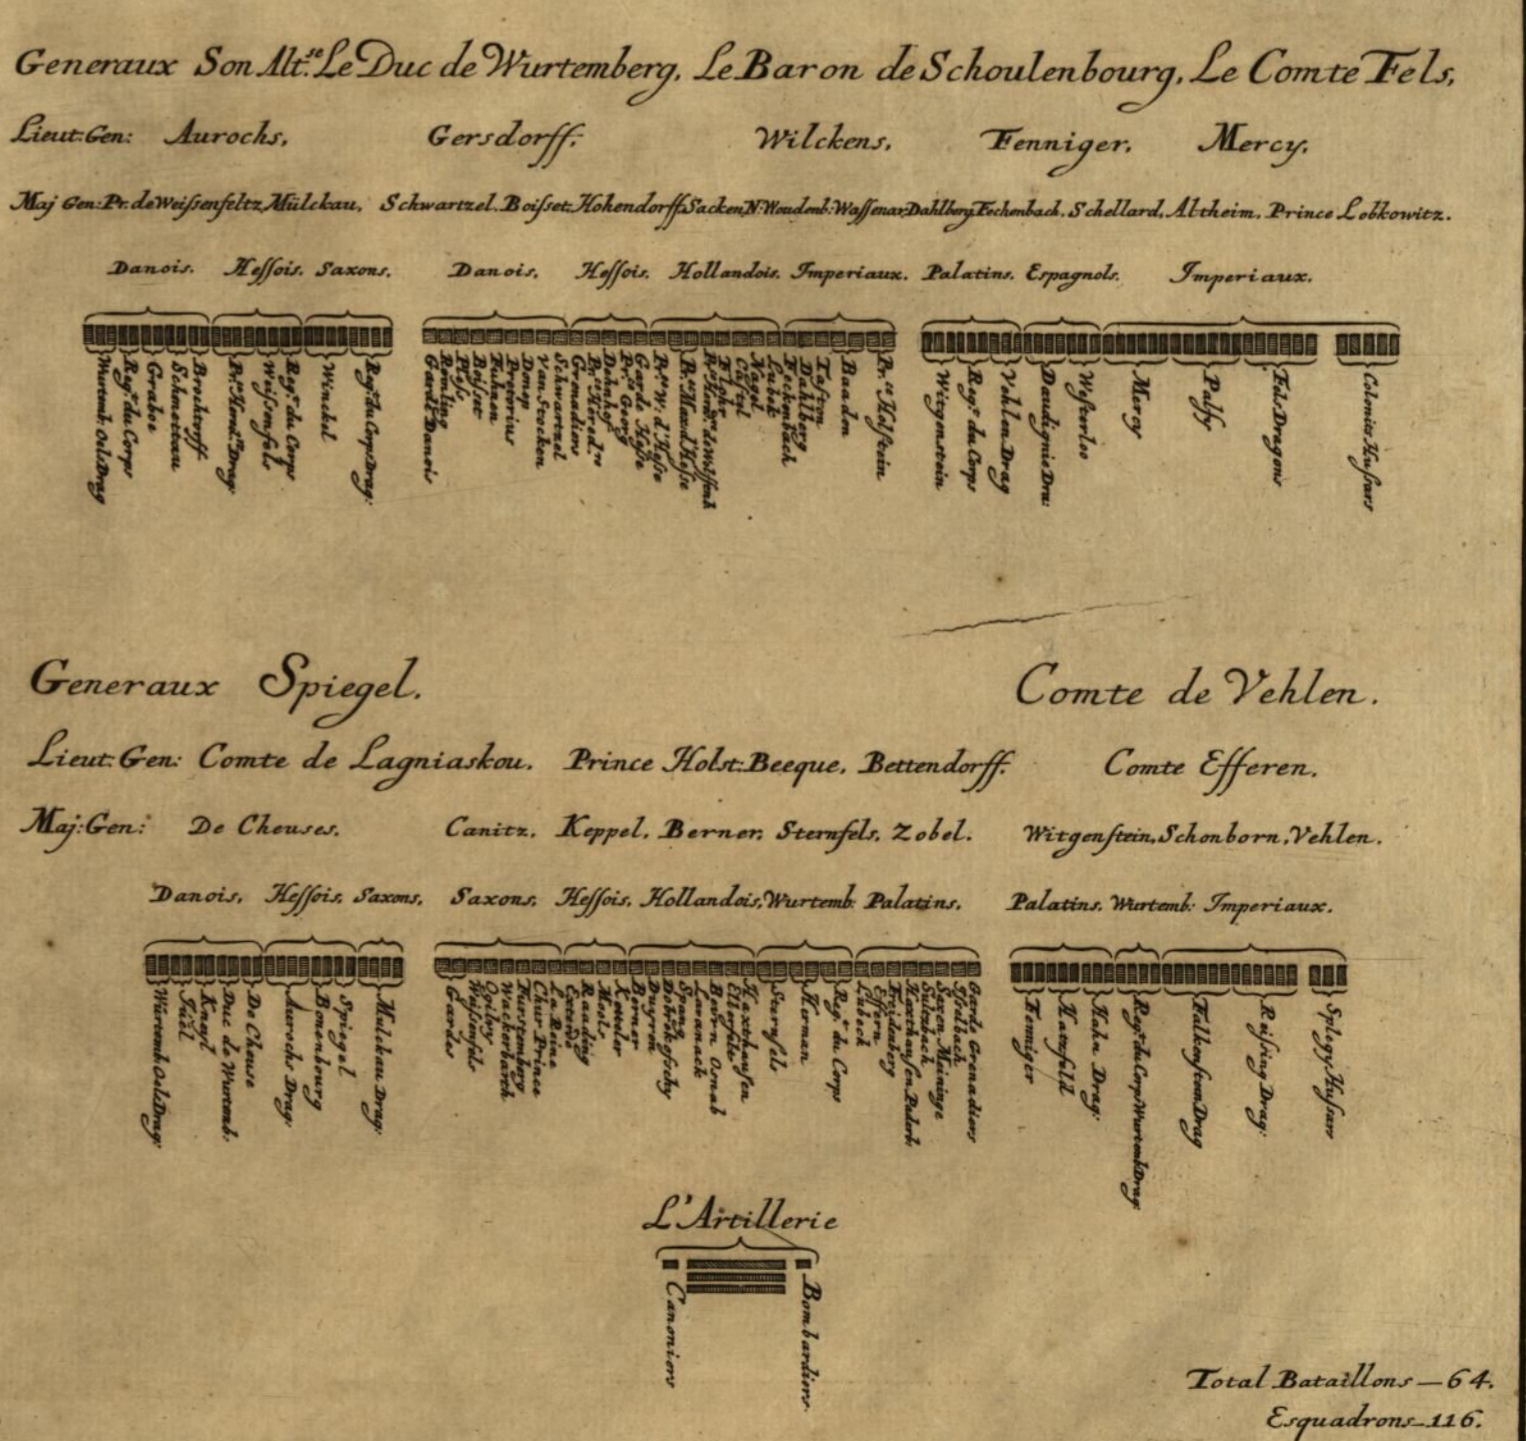 Generaux Son Alt.se Le Duc de Wurtemberg, Le Baron de Schoulenbourg, Le Comte Fels,
Lieut: Gen: Aurochs, Gersdorff, Wilckens, Fenniger, Mercy,
Maj Gen: Pr. de Weissenfeltz, Mülckau, Schwartzel, Boisset, Hohendorff, Sacken, N: Woudenb: Wassenar, Dahlberg, Fechenbach, Schellard, Altheim, Prince Lobkowitz.
Danois. Hessois. Saxons. Danois. Hessois. Hollandois. Imperiaux. Palatins. Espagnols. Imperiaux.
Wurtemb: Oels Drag
Regt. du Corps
Grabe
Schmettau
Brockdorff
Weissenfels
Regt. du Corps
Winckel
Regt. du Corps Drag:
Garde Danois
Boisset
Fuhnen
Pretorius
Donop
Van Stocken
Schwartzel
Grenadiers
Dehnhof
Pr.ce Georg
Garde Hesse
Pr.ce W. d'Hesse
Nagel
Lubek
Fechenbach
Dahlberg
Taston
Baaden
Pr.ce Holstein
Witgenstein
Regt. du Corps
Vehlen Drag
Westerloo
Mercy
Palfy
Fels Dragons
Colonics Hussars
Generaux Spiegel. Comte de Vehlen.
Lieut: Gen: Comte de Lagniaskou. Prince Holst: Beeque. Bettendorff. Comte Efferen.
Maj: Gen: De Cheuses. Canitz. Keppel. Berner. Sternfels. Zobel. Witgenstein, Schonborn, Vehlen.
Danois. Hessois. Saxons. Saxons. Hessois. Hollandois. Wurtemb: Palatins. Palatins. Wurtemb: Imperiaux.
Wurtemb Oels Drag:
Juel
Duc de Wurtemb.
De Cheuse
Aurochs Drag:
Bonenbourg
Spiegel
Mulckau Drag:
Gardes
Weissenfels
Ogilvy
Wackerbarth
Furstemberg
Chur Prince
La Reine
Exterde
Rantzig
Kettler
Berner
Spang
Lavanack
Bevern Osnab
Elberfeld
Haxthausen
Sternfels
Herman
Regt. du Corps
Lubeck
Effern
Freidenberg
Haxthausen Paderb:
Sultzbach
Saxen Meininge
Garde Grenadiers
Fenniger
Hatzfeld
Hahn Drag:
Regt. du Corps Wurtemb Drag:
Falkenstein Drag
Reising Drag:
Spleny Hussars
L'Artillerie
Canoniers
Bombardiers
Total Bataillons — 64.
Esquadrons — 116.